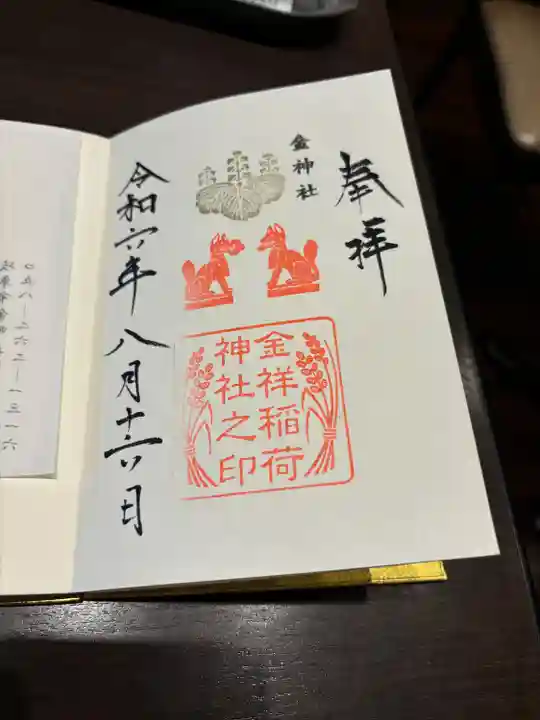 奉拝
金神社
金祥稲荷
神社之印
令和六年八月十六日
〇五八―二六三―一三一六